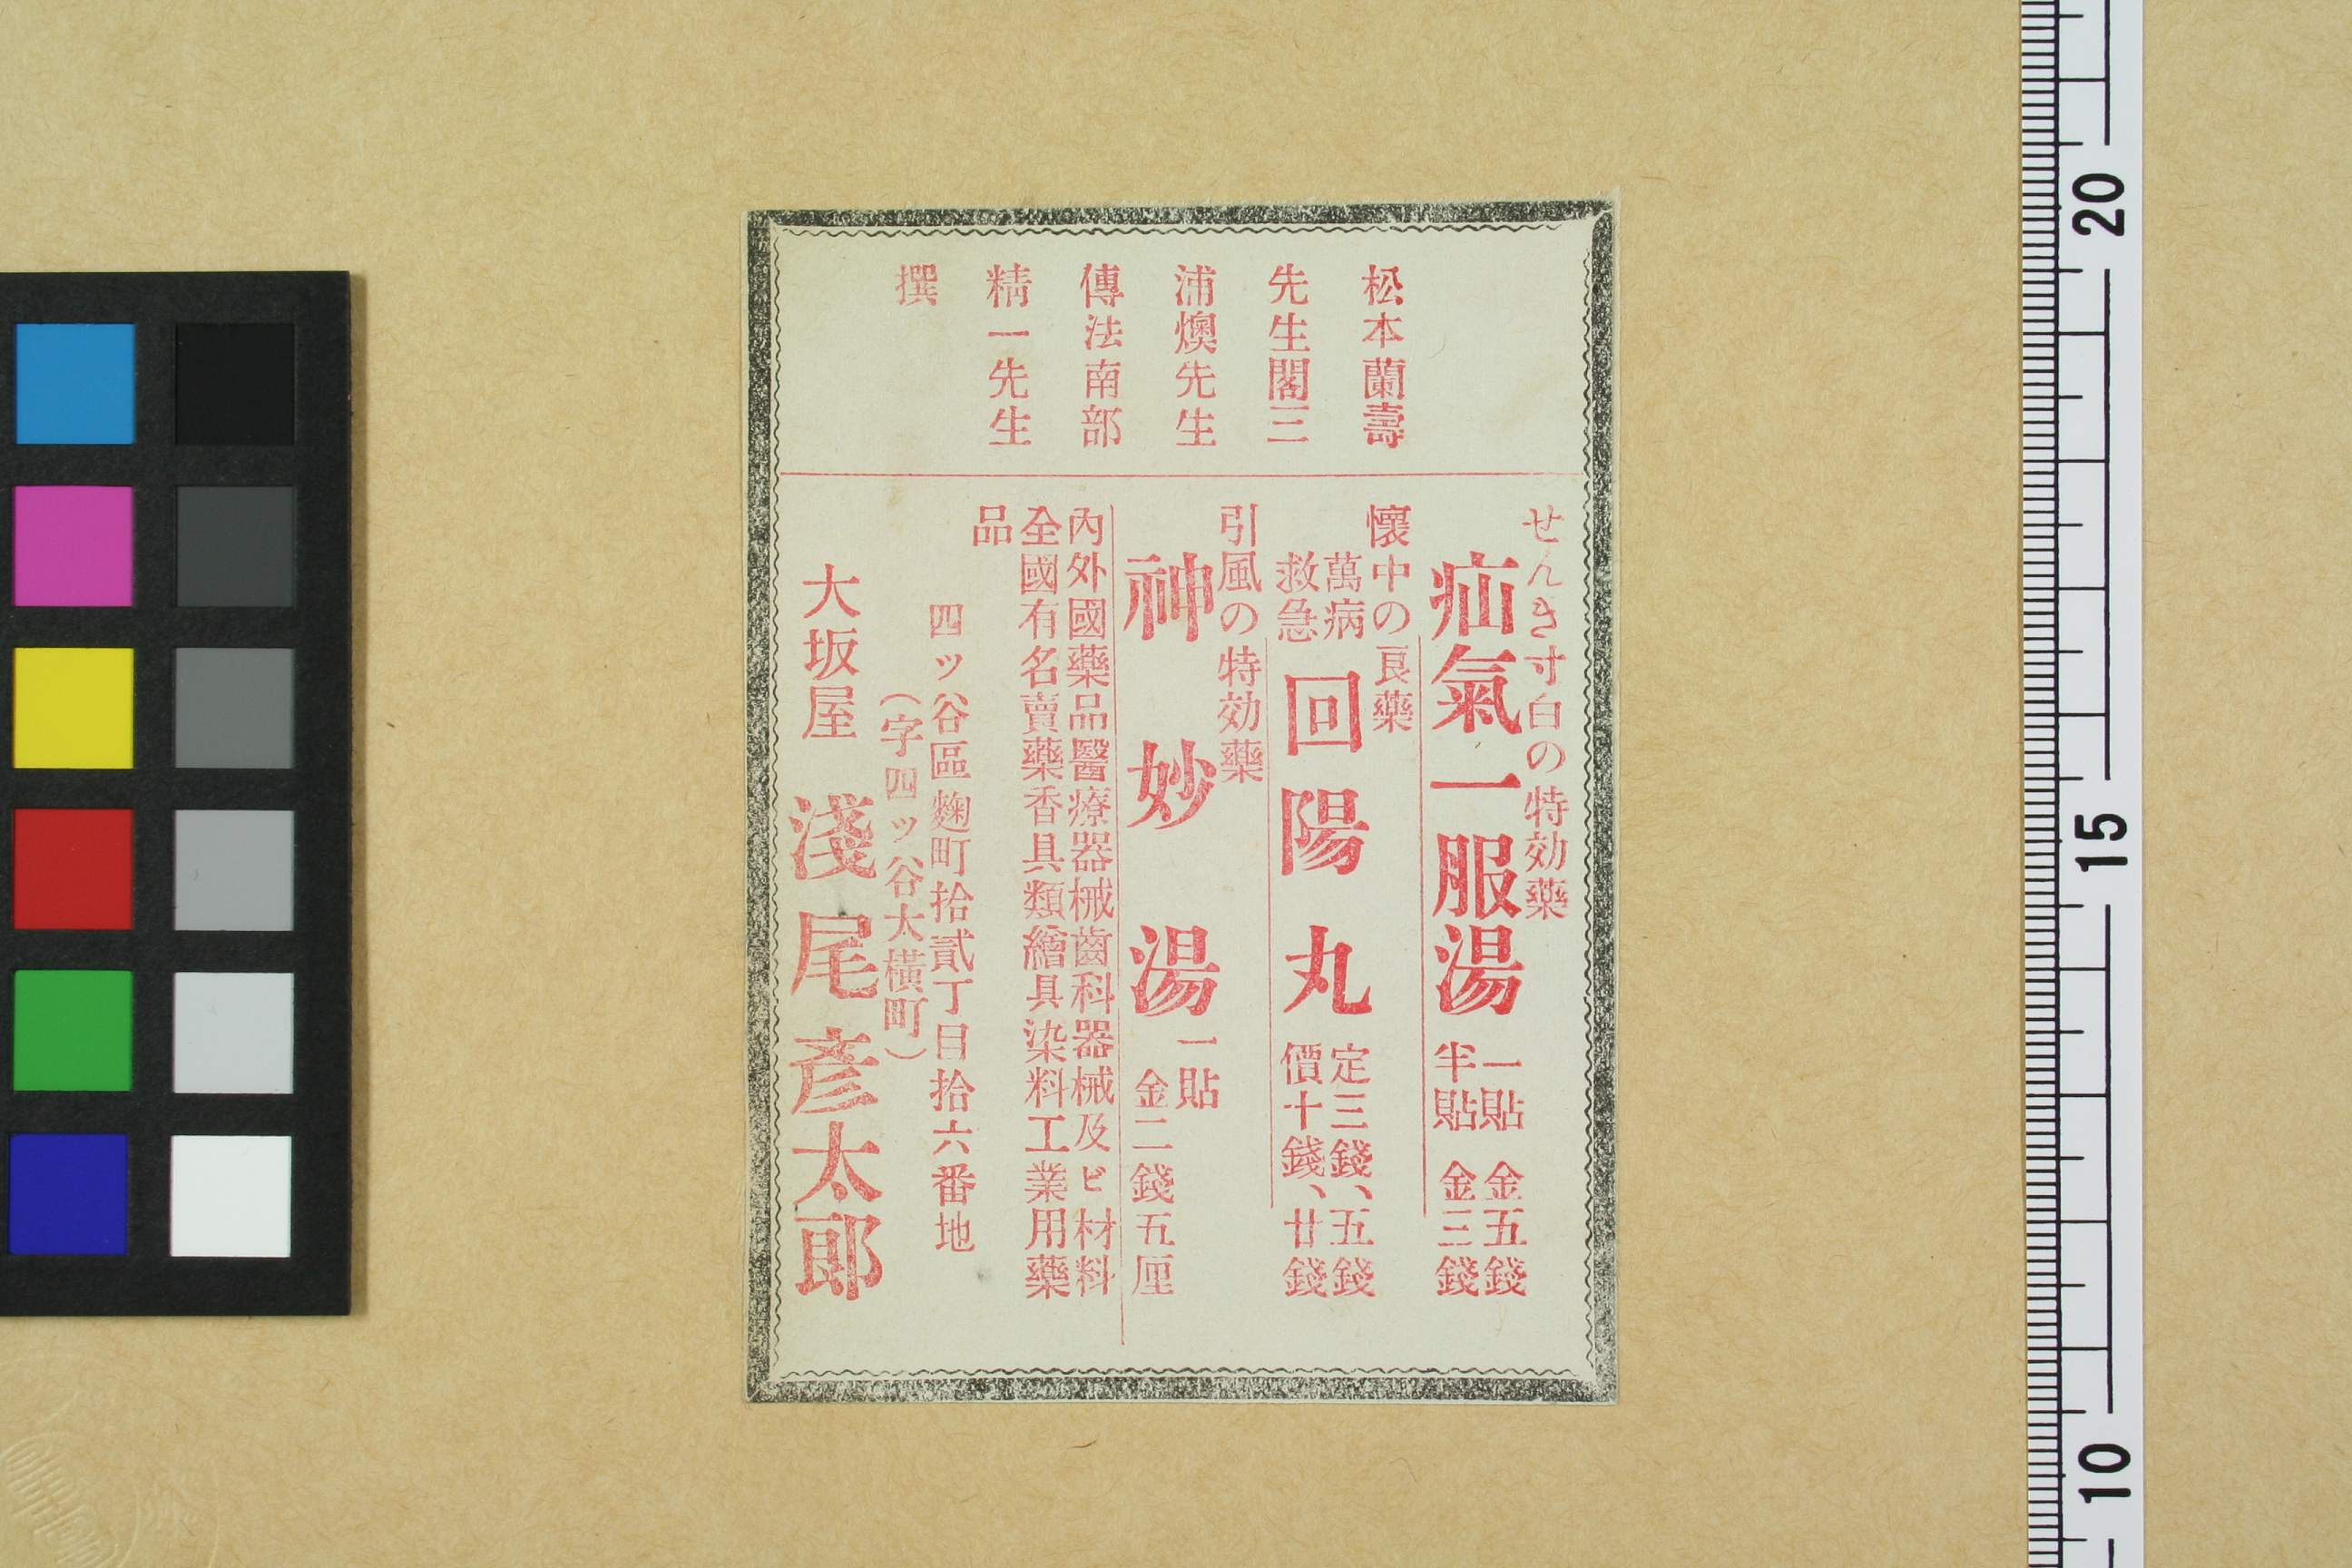 松本蘭壽
先生閣三
浦燠先生
傳法南部
精一先生
撰
せんき寸白の特効藥
疝氣一服湯
一貼 金五錢
半貼 金三錢
懷中の良藥
萬病
救急
回陽丸
定三錢、五錢
價十錢、廿錢
引風の特効藥
神妙湯
一貼
金二錢五厘
內外國藥品醫療器械齒科器械及ビ材料
全國有名賣藥香具類繪具染料工業用藥
品
四ッ谷區麴町拾貳丁目拾六番地
(字四ッ谷大橫町)
大坂屋 淺尾彥太郎
20
15
10